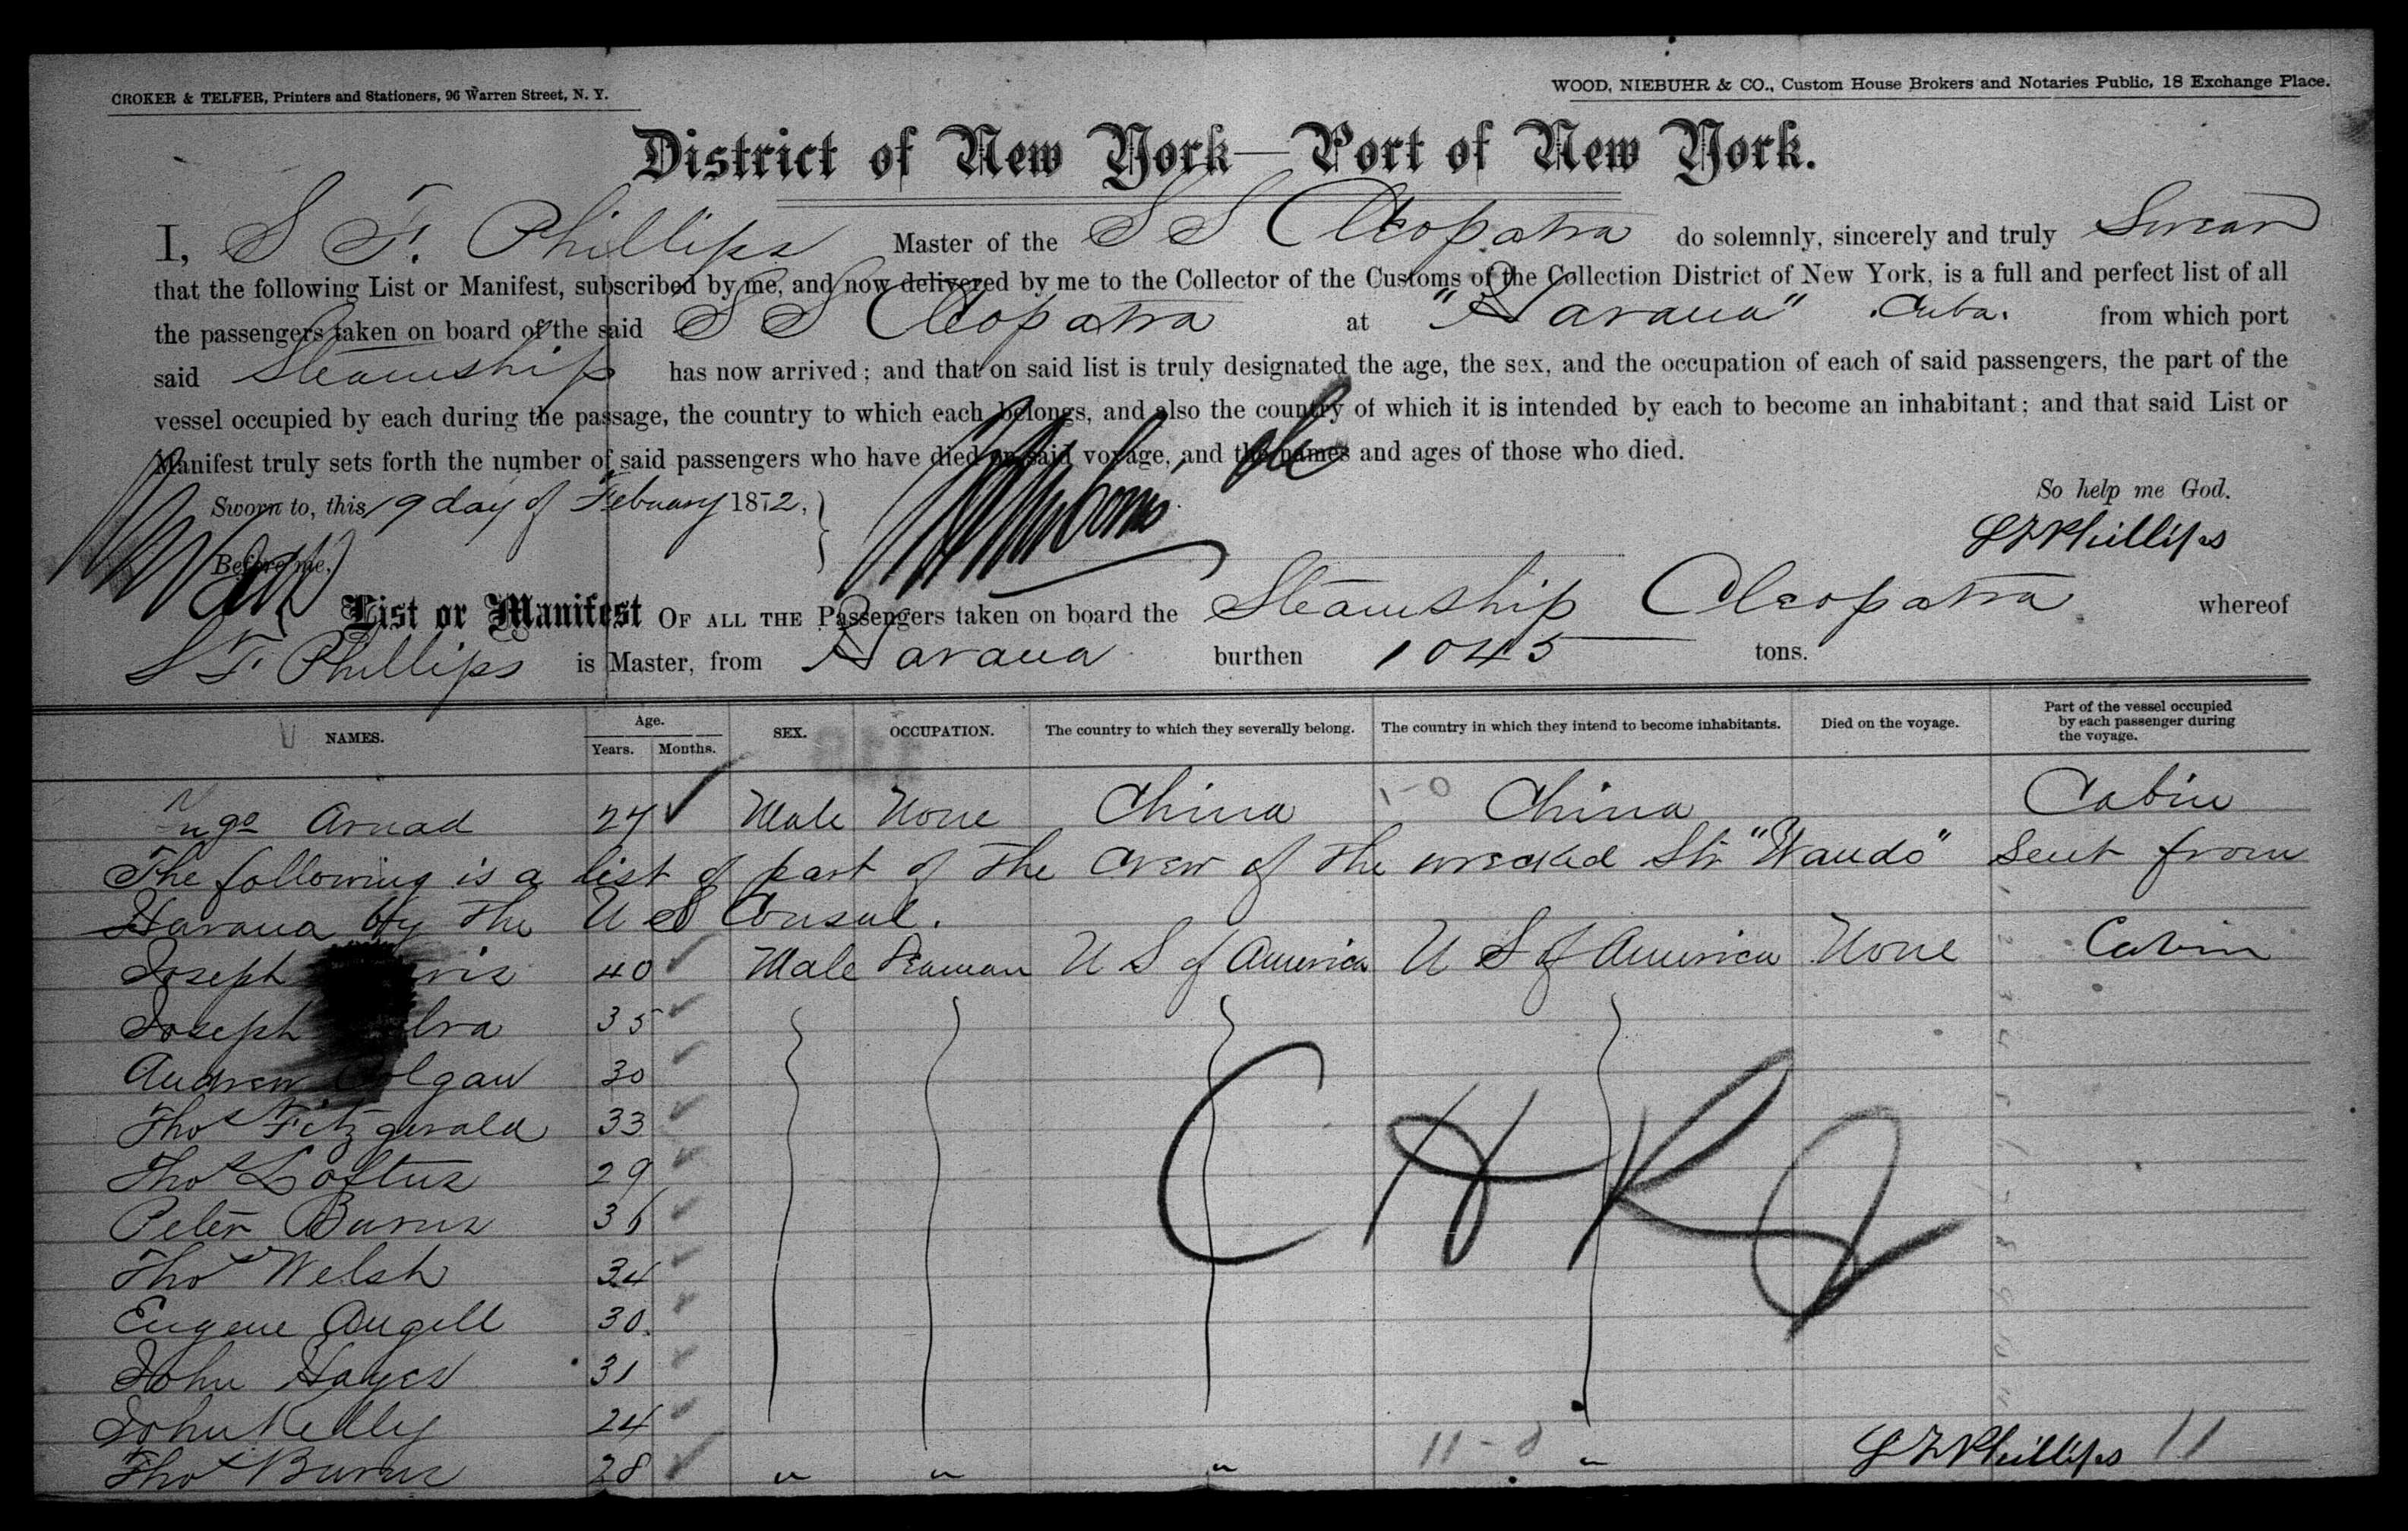 CROKER & TELFER, Printers and Stationers, 96 Warren Street, N. Y.
WOOD, NIEBUHR & CO., Custom House Brokers and Notaries Public, 18 Exchange Place.
District of New York—Port of New York.
I, S F. Phillips Master of the S S Cleopatra do solemnly, sincerely and truly Swear
that the following List or Manifest, subscribed by me, and now delivered by me to the Collector of the Customs of the Collection District of New York, is a full and perfect list of all
the passengers taken on board of the said S S Cleopatra at "Havana" Cuba. from which port
said Steamship has now arrived; and that on said list is truly designated the age, the sex, and the occupation of each of said passengers, the part of the
vessel occupied by each during the passage, the country to which each belongs, and also the country of which it is intended by each to become an inhabitant; and that said List or
Manifest truly sets forth the number of said passengers who have died on said voyage, and the names and ages of those who died.
So help me God.
Sworn to, this 19 day of February 1872,
S F Phillips
Before me,
List or Manifest OF ALL THE Passengers taken on board the Steamship Cleopatra whereof
S F. Phillips is Master, from Havana burthen 1045 tons.
NAMES. Age. Years. Months. SEX. OCCUPATION. The country to which they severally belong. The country in which they intend to become inhabitants. Died on the voyage. Part of the vessel occupied by each passenger during the voyage.
Arnad 27 Male None China 1-0 China Cabin
The following is a list of part of the crew of the wrecked Str "Wando" Sent from
Havana by the U S Consul.
Joseph 40 Male Seaman U S of America U S of America None Cabin
Joseph 35
Andrew 30
Thos Fitzgerald 33
Thos Loftus 29
Peter Burns 36
Thos Welsh 34
Eugene Angell 30.
John Hayes 31
John Kelly 24
Thos Burns 28 " " " 11-0 " S F Phillips 11